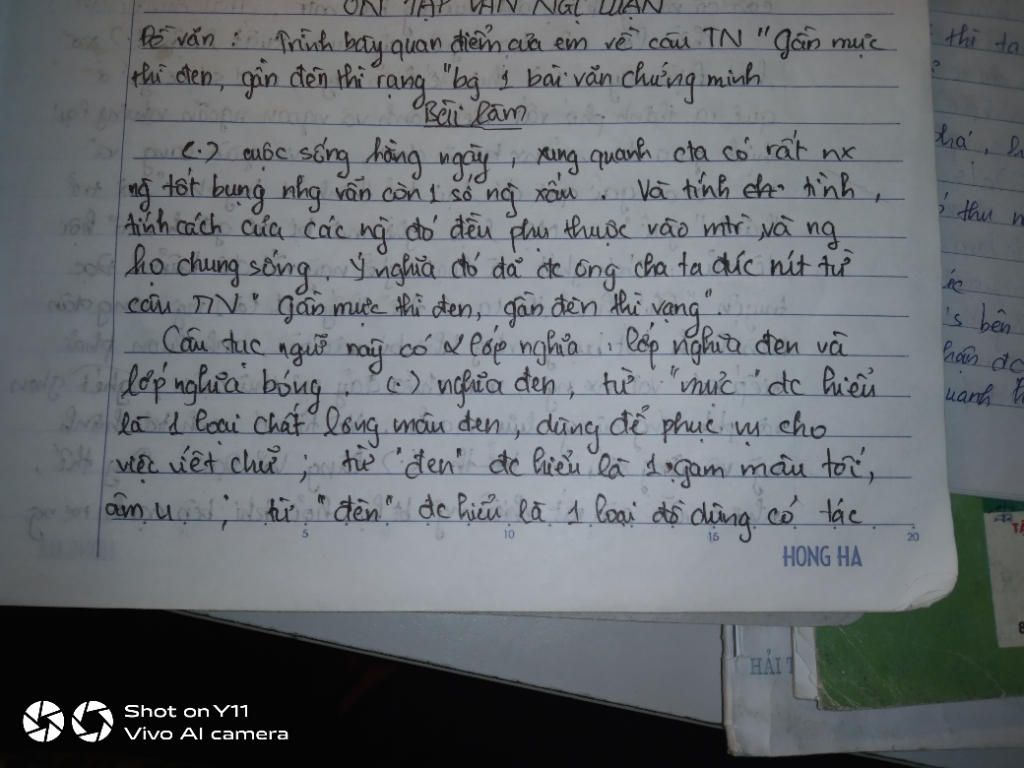 ÔN TẬP VĂN NGHỊ LUẬN
Đề văn : Trình bày quan điểm của em về câu TN "Gần mực
thì đen, gần đèn thì rạng" bg 1 bài văn chứng minh
Bài làm
(.) cuộc sống hằng ngày, xung quanh cta có rất nx
ng tốt bụng nhg vẫn còn 1 số ng xấu. Và tính tình,
tính cách của các ng đó đều phụ thuộc vào mtr và ng
họ chung sống. Ý nghĩa đó đã đc ông cha ta đúc nít từ
câu TN "Gần mực thì đen, gần đèn thì rạng"
Câu tục ngữ này có 2 lớp nghĩa : lớp nghĩa đen và
lớp nghĩa bóng (.) nghĩa đen, từ "mực" đc hiểu
là 1 loại chất lỏng màu đen, dùng để phục vụ cho
việc viết chữ ; từ "đen" đc hiểu là 1 gam màu tối,
âm u ; từ "đèn" đc hiểu là 1 loại đồ dùng có tác
5 10 15 20
HONG HA
thì ta
thu n
bên
hận đc
uanh
HẢI
Shot on Y11
Vivo AI camera